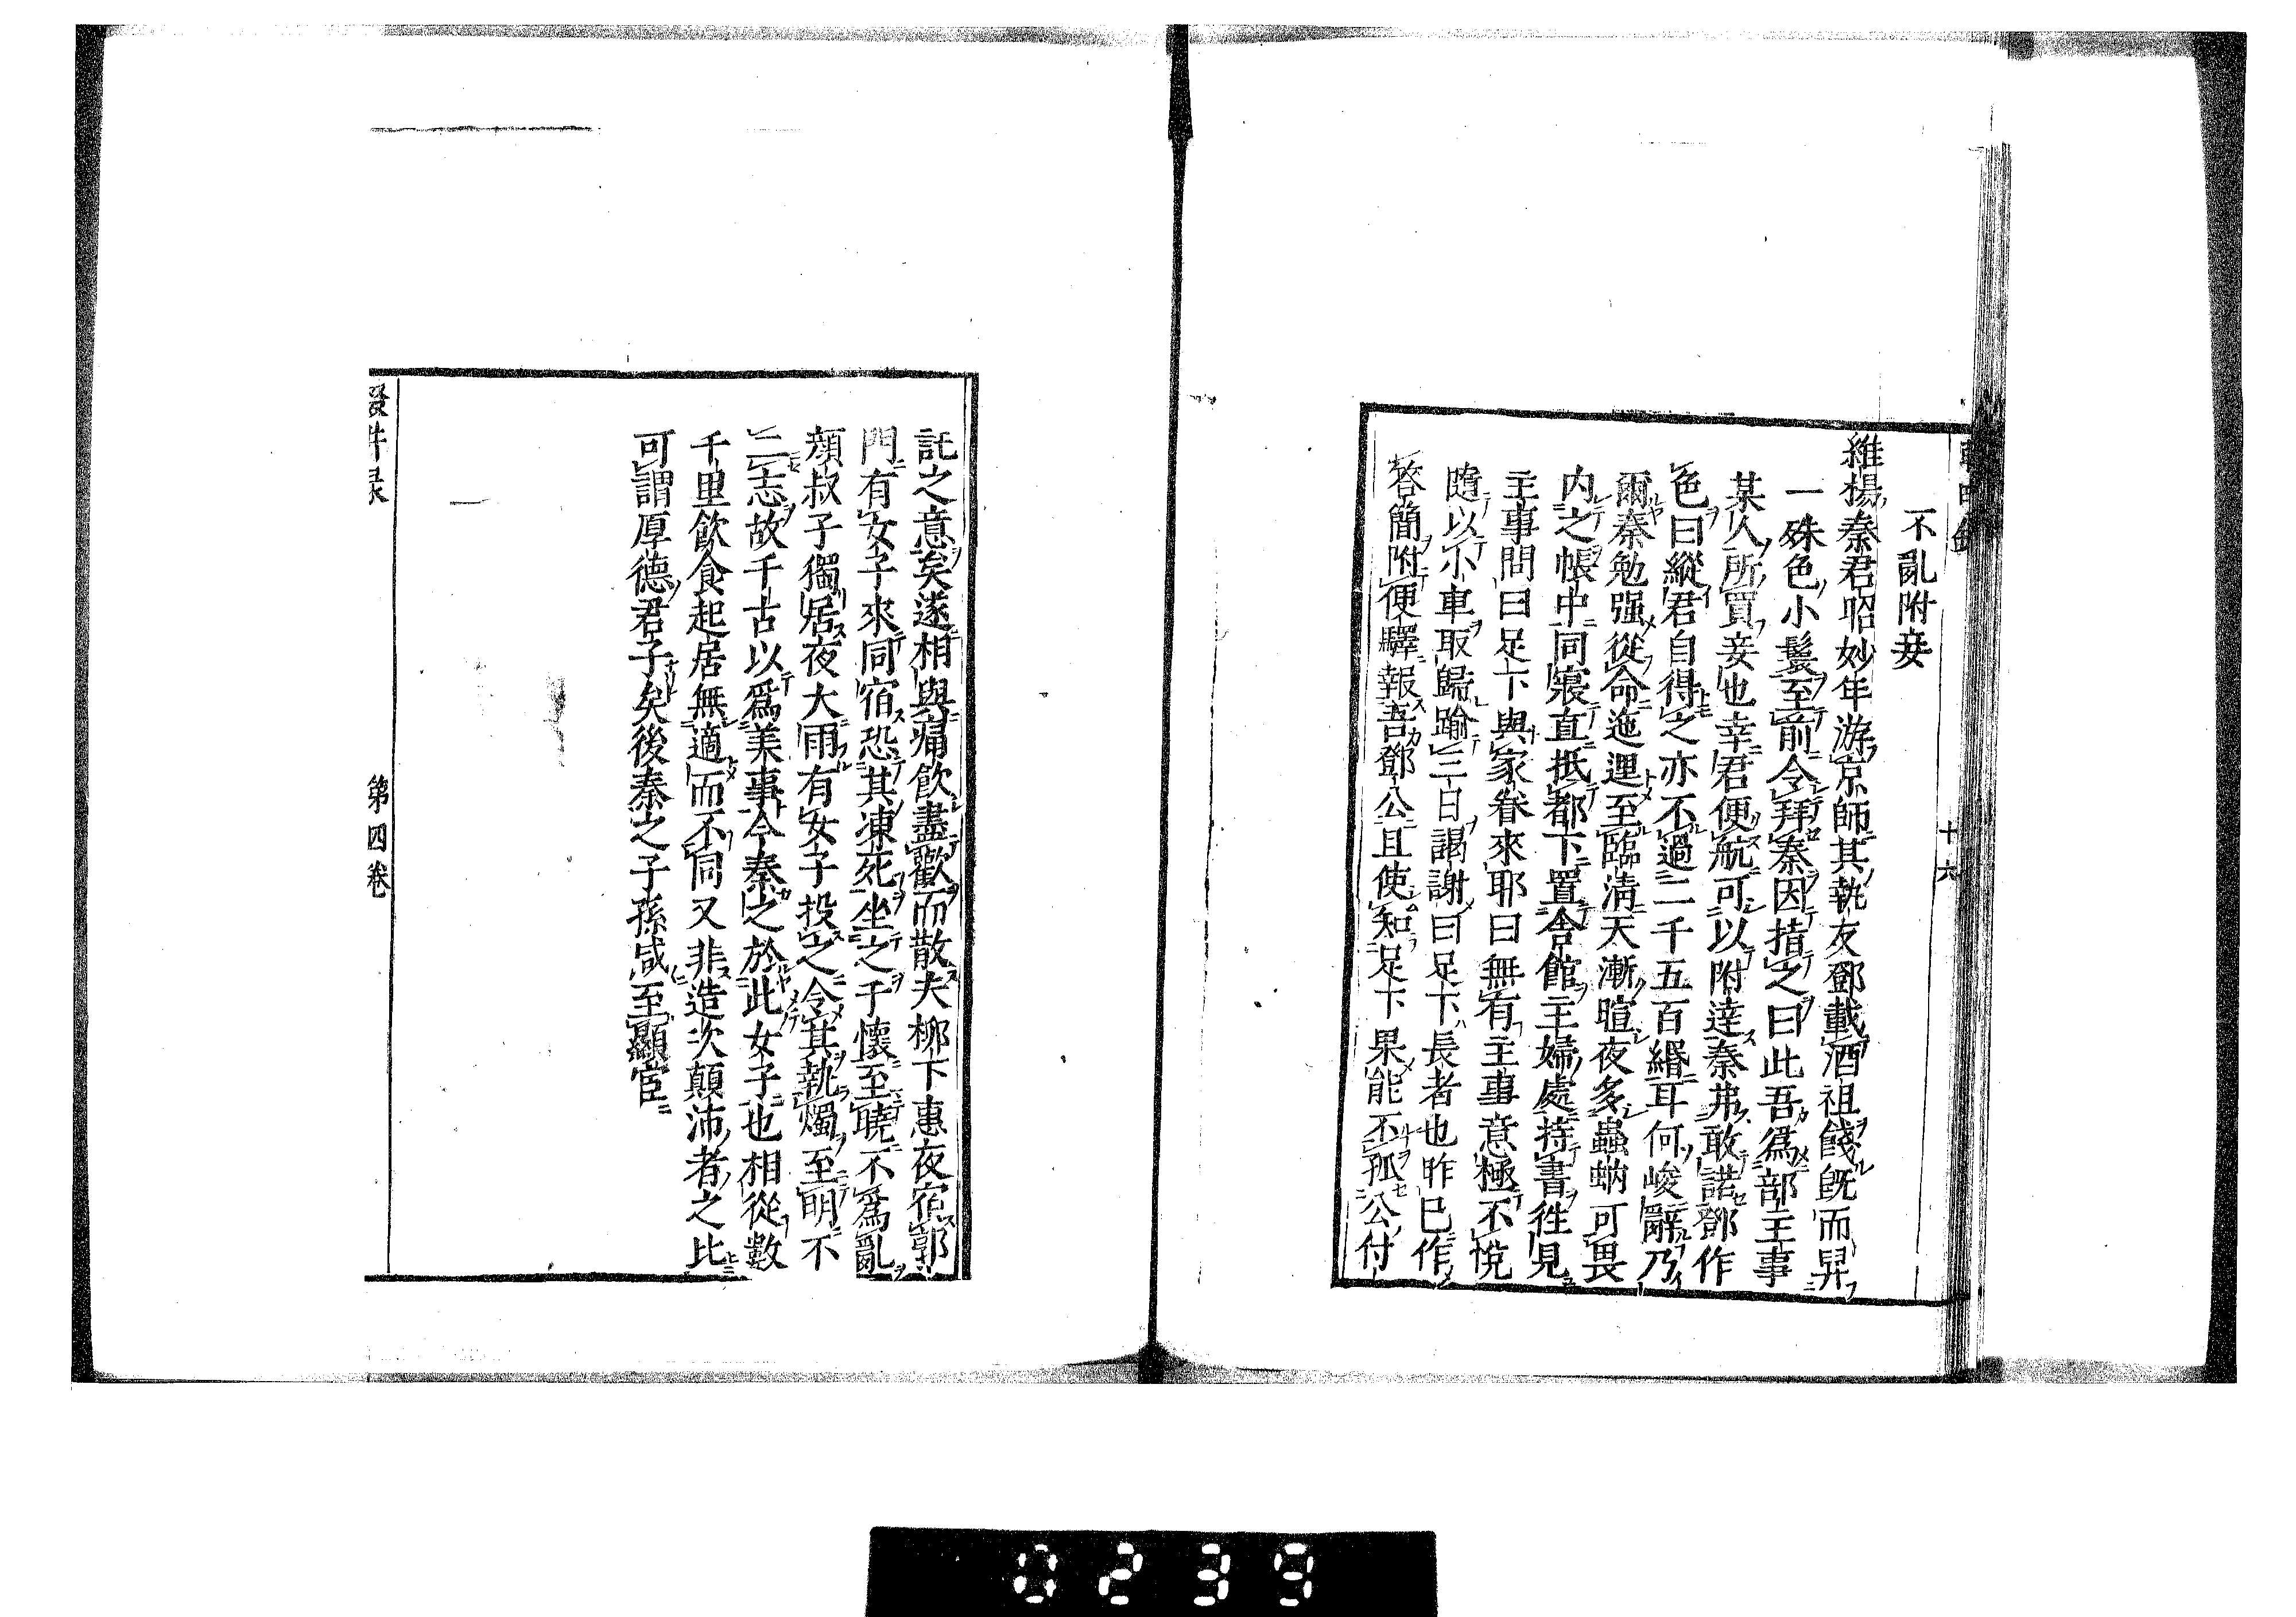 十六
不亂附妾
維揚秦君昭妙年游京師其執友鄧載酒祖餞既而舁
一殊色小鬟至前令拜秦因指之曰此吾爲部主事
某人所買妾也幸君便航可以附達秦弗敢諾鄧作
色曰縱君自得之亦不過二千五百緡耳何峻辭乃
爾秦勉强從命迤邐至臨淸天漸暄夜多蟲蚋可畏
内之帳中同寢直抵都下置舍館主婦處持書徃見
主事問曰足下與家眷來耶曰無有主事意極不悅
隨以小車取歸踰三日謁謝曰足下長者也昨已作
答簡附便驛報吾鄧公且使知足下果能不孤公付
託之意矣遂相與痛飲盡歡而散夫柳下惠夜宿郭
門有女子來同宿恐其凍死坐之于懷至曉不爲亂
顔叔子獨居夜大雨有女子投之令其執燭至明不
二志故千古以爲美事今秦之於此女子也相從數
千里飲食起居無適而不同又非造次顛沛者之比
可謂厚德君子矣後秦之子孫咸至顯宦
第四卷
0239